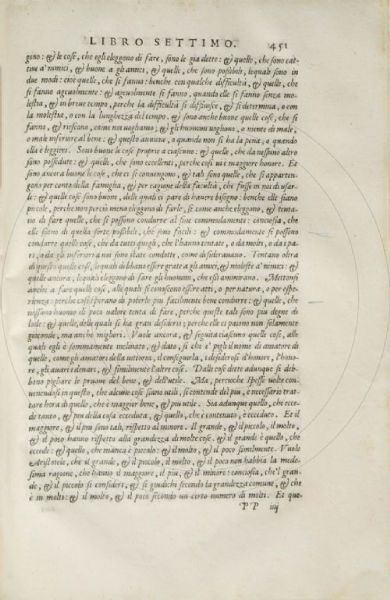 LIBRO SETTIMO. 451
gono: & le cose, che egli eleggono di fare, sono le gia dette: & quelle, che sono cat-
tiue a' nimici, & buone a gli amici, & quelle, che sono possibili, lequali sono in
due modi: cioè quelle, che si fanno: benche con qualche difficultà, & quelle, che
si fanno ageuolmente: & ageuolmente si fanno, quando elle si fanno senza mo-
lestia, & in breue tempo, perche la difficultà si diffinisce, & si determina, o con
la molestia, o con la lunghezza del tempo. & sono anche buone quelle cose, che si
fanno, & riescono, come noi uogliamo: & gli huomini uogliono, o niente di male,
o male inferiore al bene: & questo auuiene, o quando non si ha la pena, o quando
ella è leggiera. Sono buone le cose proprie a ciascuno: & quelle, che da nessuno altro
sono possedute: & quelle, che sono eccellenti, perche così ui è maggiore honore. Et
sono ancora buone le cose, che ci si conuengono, & tali sono quelle, che si apparten-
gono per conto della famiglia, & per cagione della facultà, che fusse in noi di usar-
le: & quelle cose sono buone, delle quali ci pare di hauere bisogno: benche elle siano
picciole, perche non perciò meno eleggono di farle, si come anche eleggono, & tenta-
no di fare quelle, che si possono condurre al fine commodamente: conciosia, che
elle siano di quella sorte possibili, che sono facili: & commodamente si possono
condurre quelle cose, che da tutti quegli, che l'hanno tentate, o da molti, o da i pa-
ri, o da gli inferiori a noi sono state condotte, come desiderauamo. Tentano oltra
di questo quelle cose, lequali debbano essere grate a gli amici, & moleste a' nimici: &
quelle ancora, lequali eleggono di fare gli huomini, che essi ammirano. Mettonsi
anche a fare quelle cose, alle quali si conoscono essere atti, o per natura, o per espe-
rienza: perche così sperano di poterle piu facilmente bene condurre: & quelle, che
nissuno huomo di poco ualore tenta di fare, perche queste tali sono piu degne di
lode: & quelle, delle quali si ha gran desiderio: perche elle ci paiono non solamente
gioconde, ma anche migliori. Vuole ancora, & seguita ciascuno quelle cose, alle
quali egli è sommamente inclinato, & dato, si che s' pigli il nome di amatore di
quelle, come gli amatori della uittoria, il conseguirla, i desiderosi d'honore, l'hono-
re, gli auari i denari, & similmente l'altre cose. Dalle cose dette adunque si deb-
bono pigliare le pruoue del bene, & dell'utile. Ma, percioche spesse uolte con-
uenendosi in questo, che alcune cose siano utili, si contende del piu, è necessario trat-
tare hora di quello, che è maggior bene, & piu utile. Sia adunque quello, che ecce-
de tanto, & piu della cosa ecceduta, & quello, che è contenuto, è ecceduto. Et il
maggiore, & il piu sono tali, rispetto al minore. Il grande, & il picciolo, il molto,
& il poco hanno rispetto alla grandezza di molte cose. & il grande è quello, che
eccede: & quello, che manca è picciolo: & il molto, & il poco similmente. Vuole
Aristotele, che il grande, & il picciolo, il molto, & il poco non habbia la mede-
sima ragione, che hanno il maggiore, il piu, & il minore: conciosia, che'l gran-
de, & il picciolo si consideri, & si giudichi secondo la grandezza comune, & che
è in molti: & il molto, & il poco secondo un certo numero di molti. Et que
PP iiij